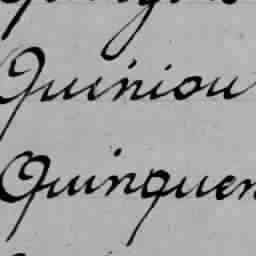 Quiniou
Quinquen